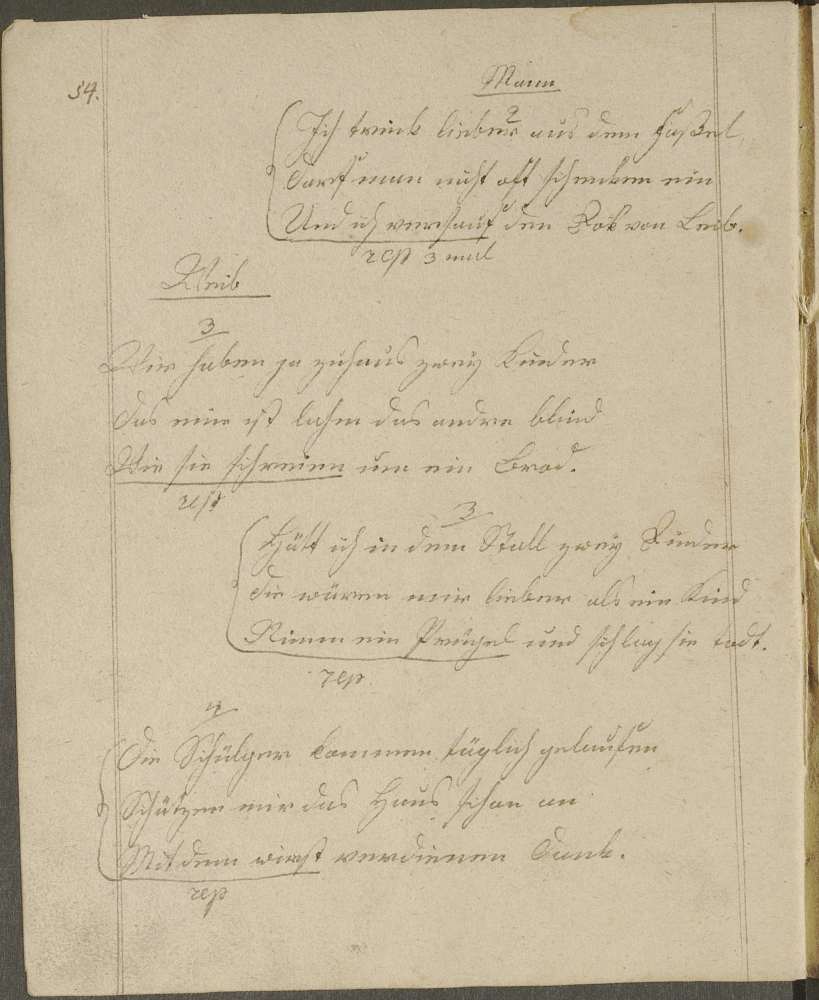 54.
Mann
2
Ich trink lieber aus dem Faßel,
Darf man nicht oft schenken ein
Und ich versauf den Rok von Leib.
rep 3 mal
Weib
3
Wir haben ja zuhaus zwey Kinder
Das eine ist lahm das andre blind
Wie sie schreien um ein Brod.
rep
3
Hätt ich in dem Stall zwey Rinder
Die wären mir lieber als ein Kind
Nimm ein Prügel und schlag sie todt.
rep
4
Die Schülger kommen täglich gelaufen
Schätzen mir das Haus schon an
Mit dem wirst verdienen Dank.
rep